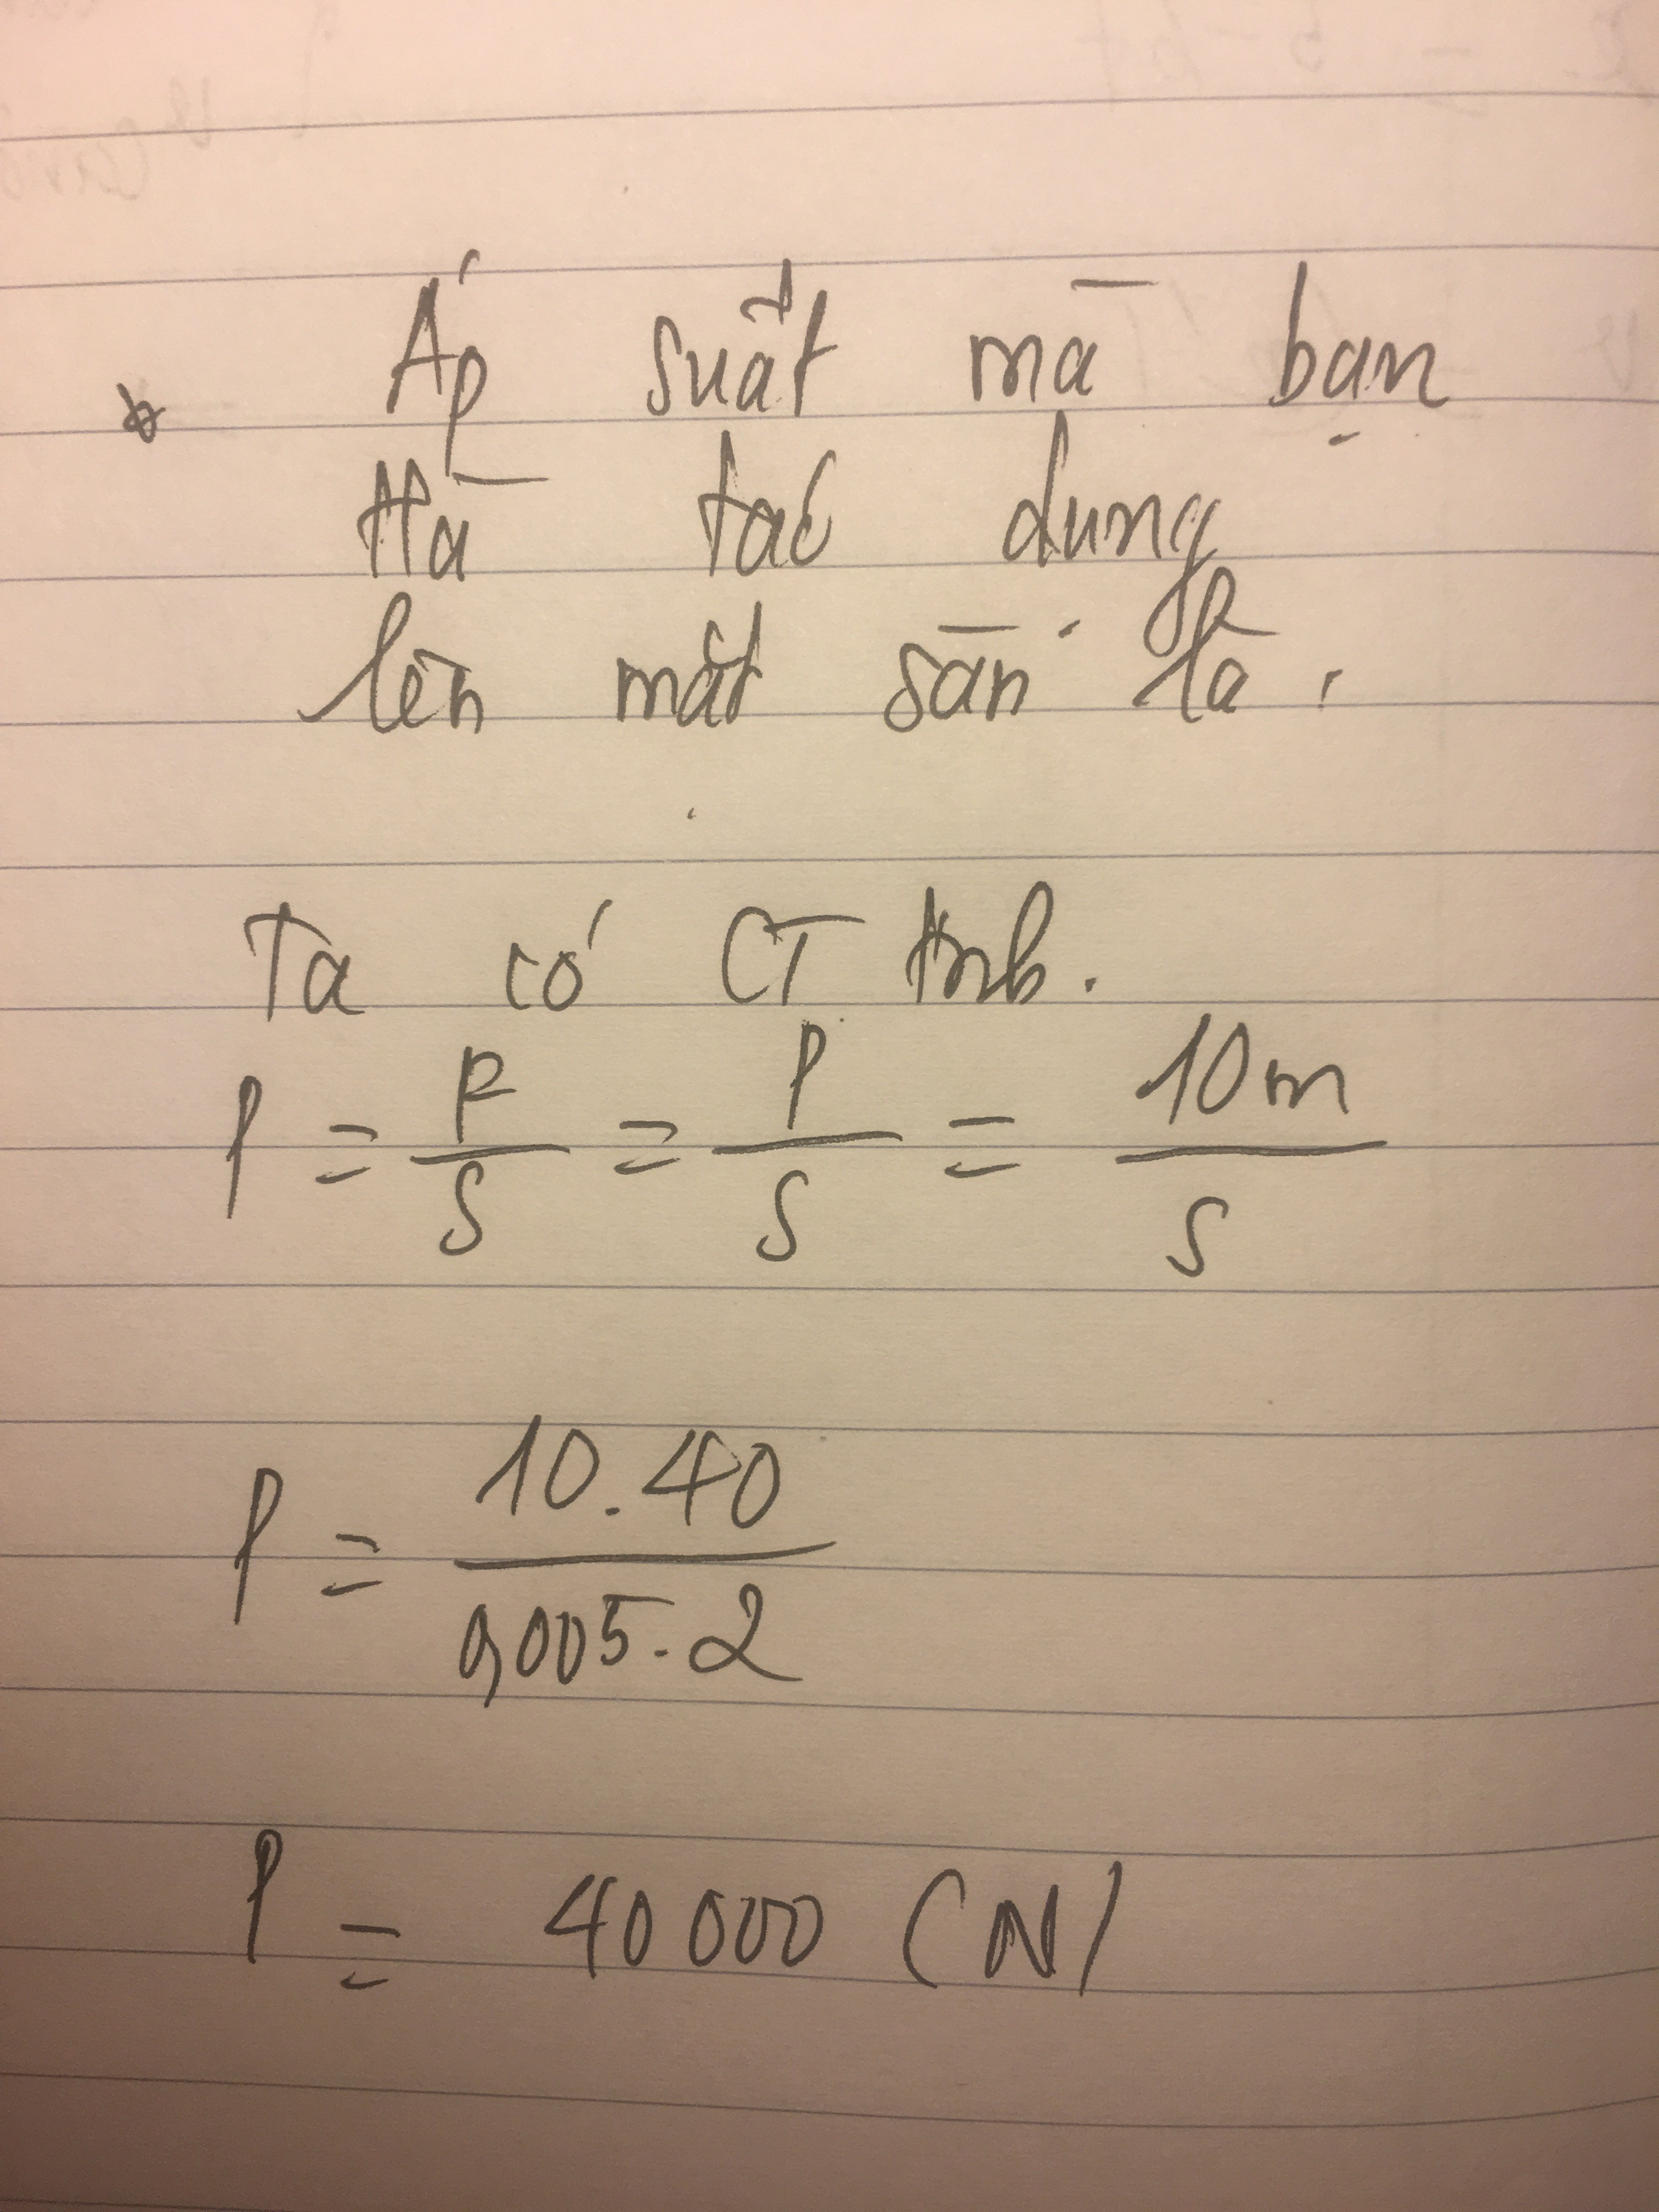 Áp suất mà bạn
Hà tác dụng
lên mặt sàn là:
Ta có CT tính.
P = F/S = P/S = 10m/S
P = 10.40/0,005.2
P = 40 000 (N)